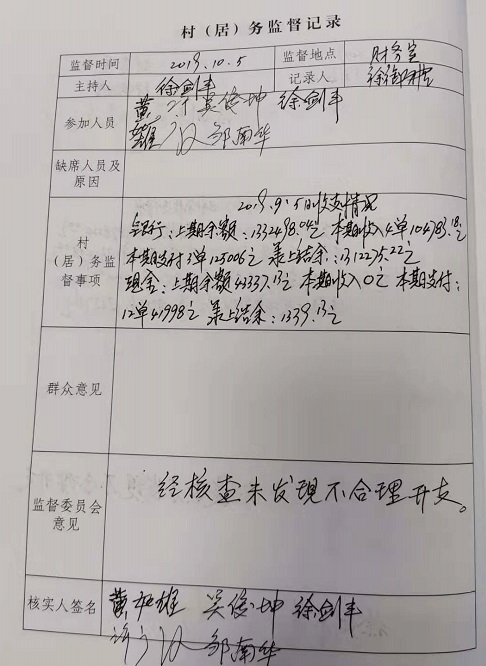 村（居）务监督记录
监督时间 2019.10.5 监督地点 财务室
主持人 徐剑丰 记录人
参加人员 黄 吴俊坤 徐剑丰
雄 邹南华
缺席人员及
原因
村
（居）务监
督事项
2019.9.5日收支情况
银行：上期余额：1332498.04元 本期收入4单104783.18元
本期支付3单125006元 表上结余：1312275.22元
现金：上期余额43337.13元 本期收入0元 本期支付：
12单41998元 表上结余：1339.13元
群众意见
监督委员会
意见
经核查未发现不合理开支。
核实人签名 黄 雄 吴俊坤 徐剑丰
邹南华